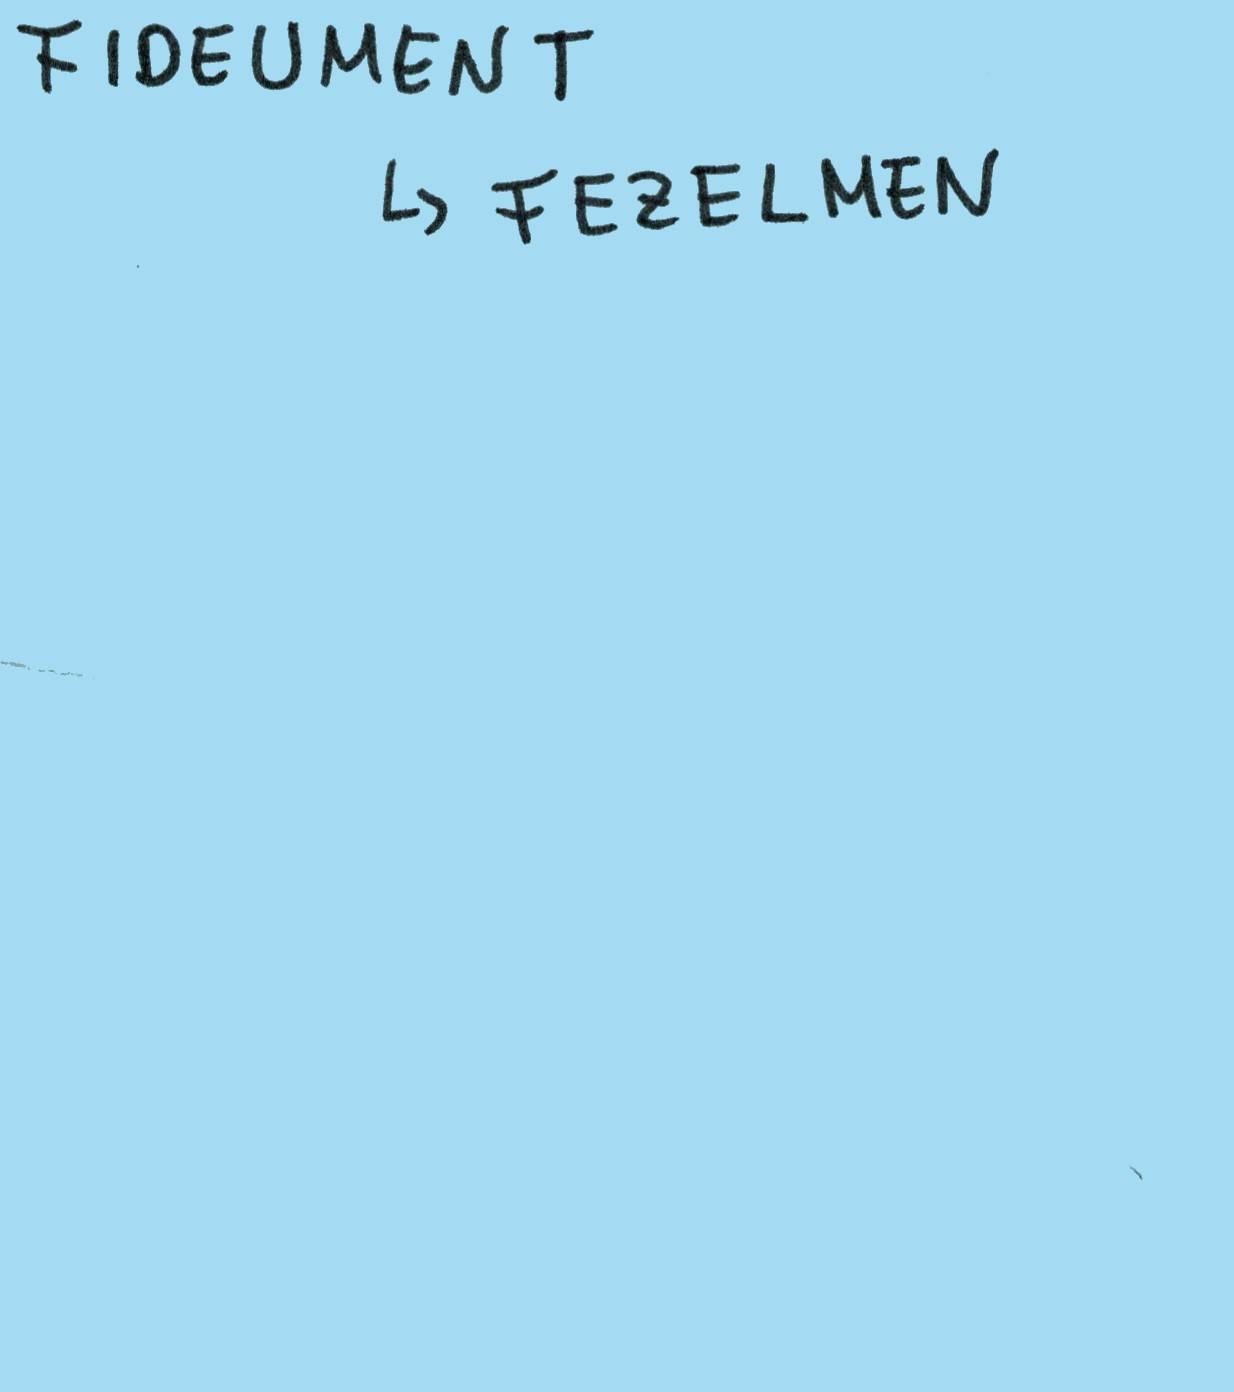 FIDEUMENT
↳ FEZELMEN